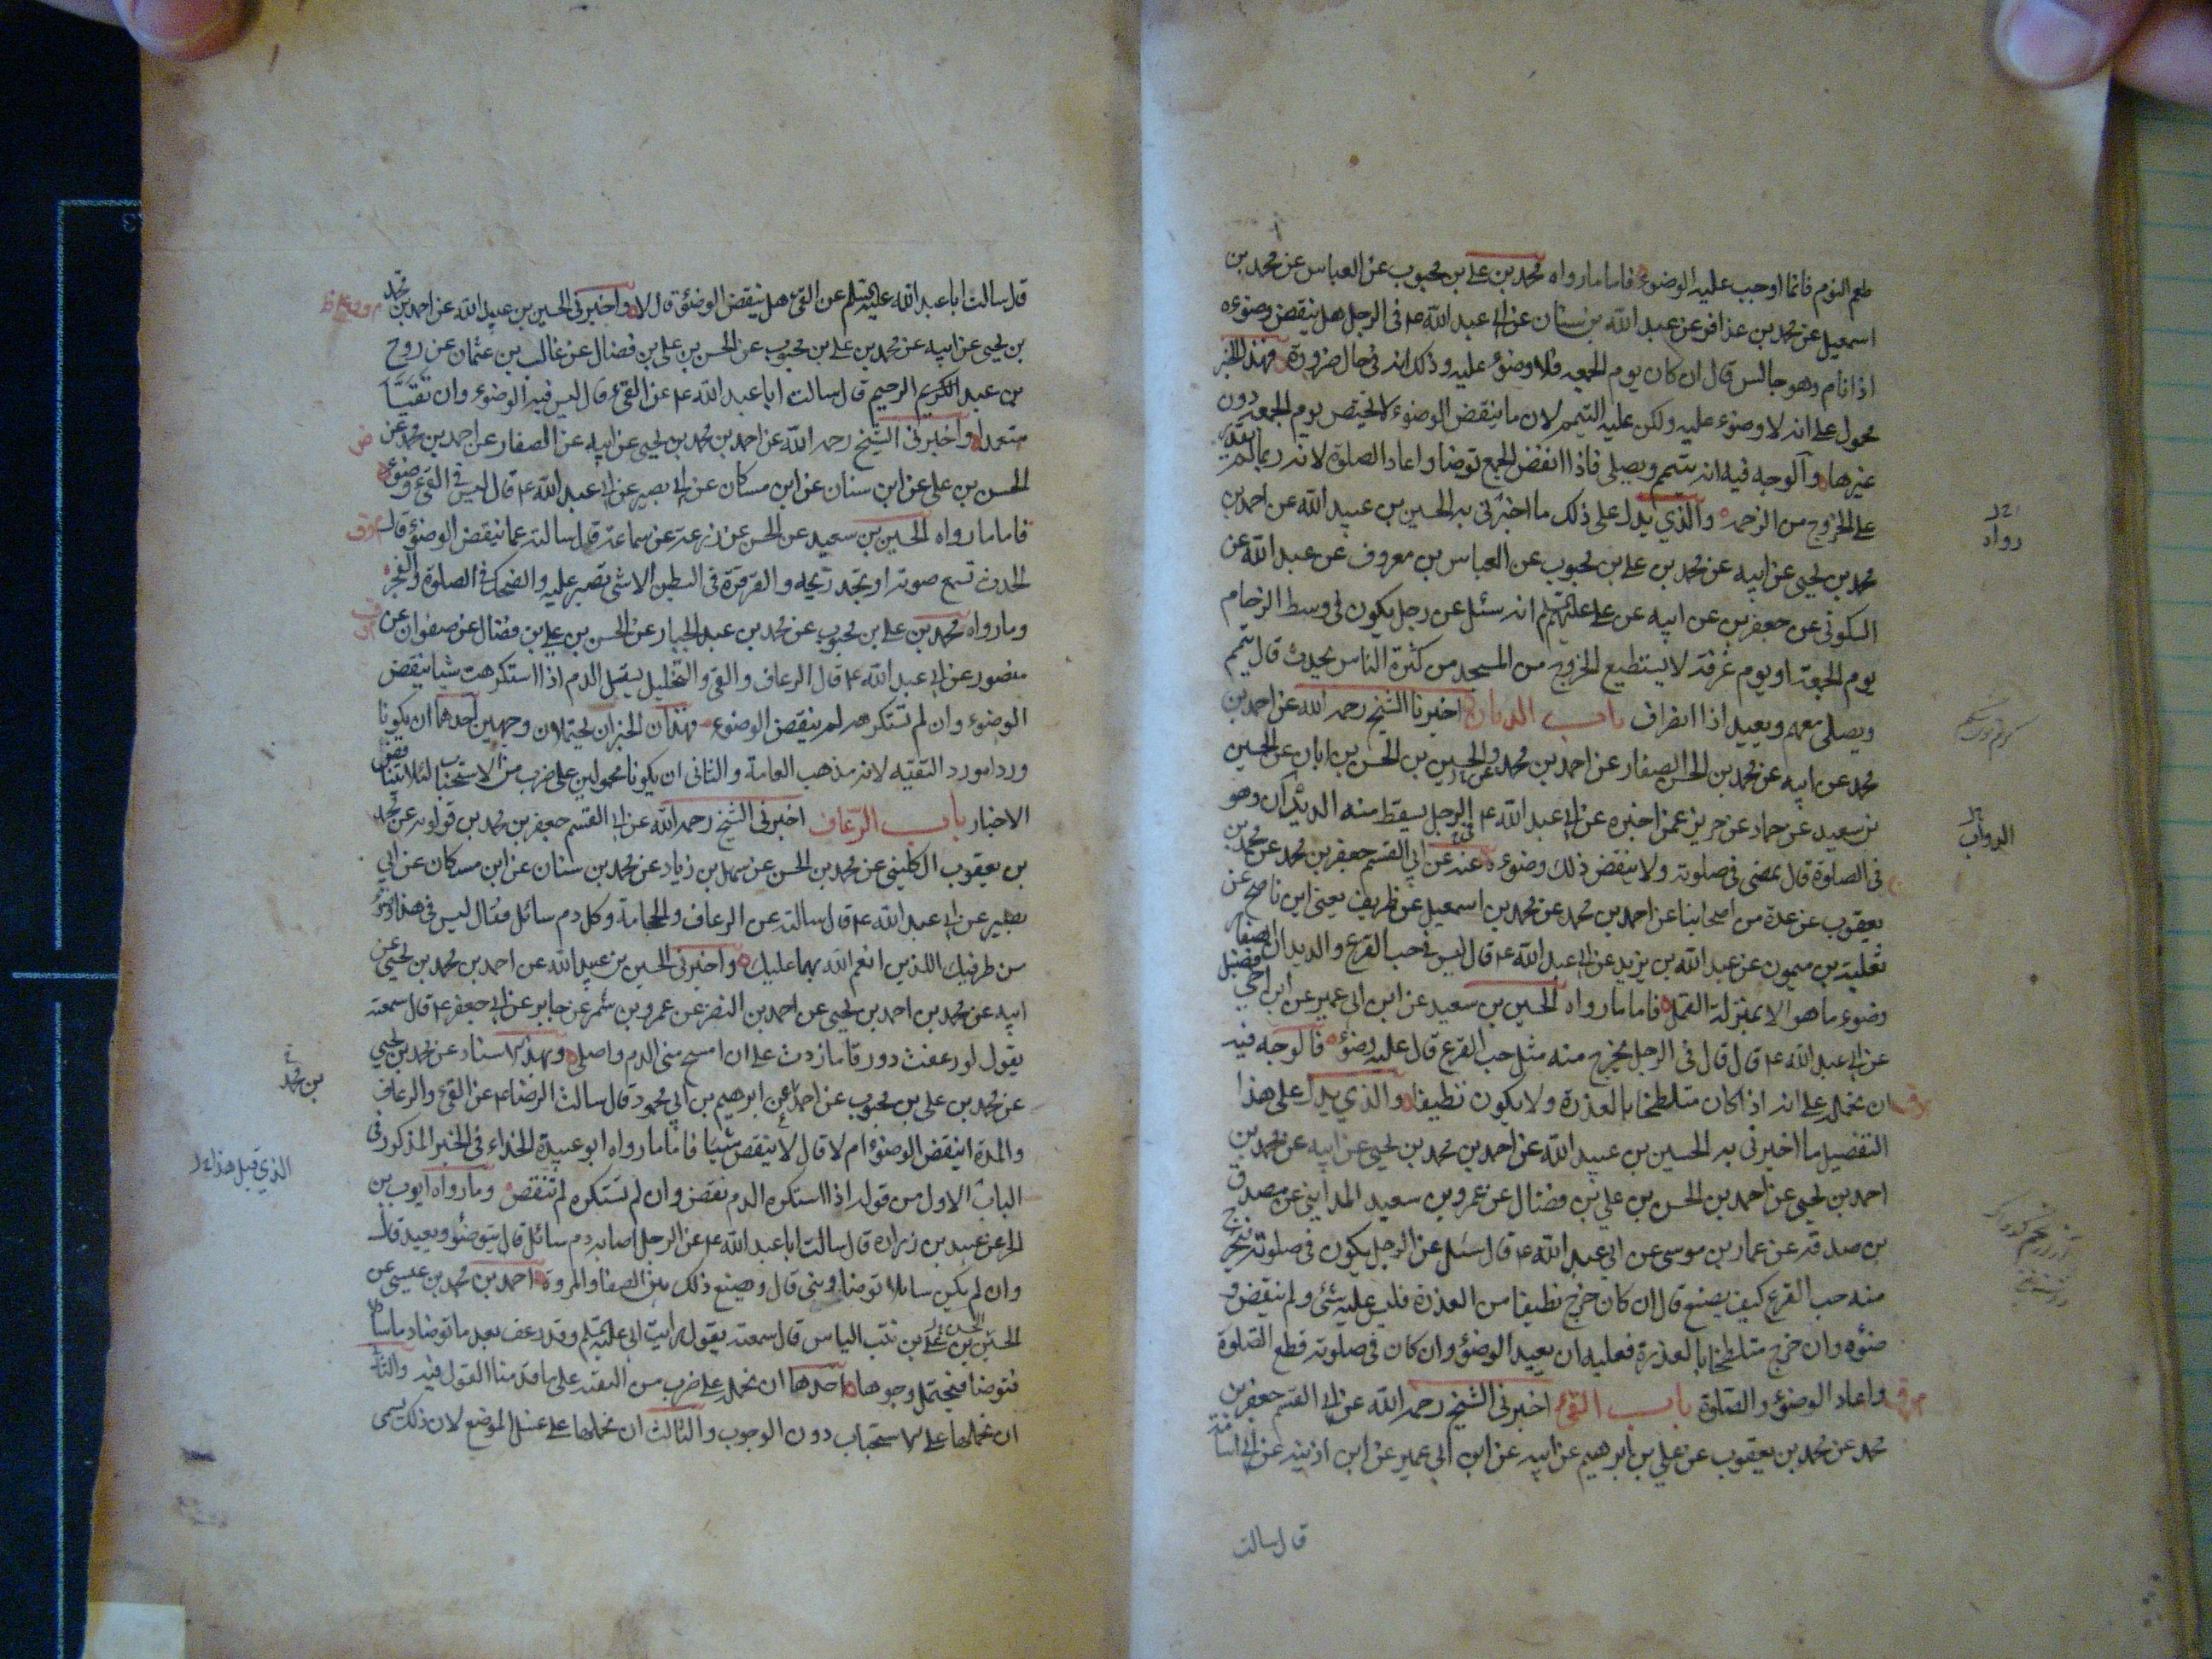 طعم النوم فانما اوجب عليه الوضوء فاما ما رواه محمد بن علي بن محبوب عن العباس عن محمد بن
اسمعيل عن محمد بن عذافر عن عبد الله بن سنان عن ابي عبد الله ع في الرجل هل ينقض وضوءه
اذا نام وهو جالس قال ان كان يوم الجمعه فلا وضوء عليه وذلك انه في حال ضرورة فهذا الخبر
محمول على انه لا وضوء عليه ولكن عليه التيمم لان ما ينقض الوضوء لا يختص بيوم الجمعه دون
غيرها والوجه فيه انه يتيمم ويصلى فاذا انفض الجمع توضا واعاد الصلوة لانه ربما لم يقدر
على الخروج من الزحمه والذي يدل على ذلك ما اخبرني به الحسين بن عبيد الله عن احمد بن
محمد بن يحيى عن ابيه عن محمد بن علي بن محبوب عن العباس بن معروف عن عبد الله عن
السكوني عن جعفر عن ابيه عن علي عليهم انه سئل عن رجل يكون في وسط الزحام
يوم الجمعة او يوم عرفة لا يستطيع الخروج من المسجد من كثرة الناس يحدث قال يتيمم
ويصلى معهم ويعيد اذا انصرف باب الديدان اخبرنا الشيخ رحمه الله عن احمد بن
محمد عن ابيه عن محمد بن الحسن الصفار عن احمد بن محمد والحسين بن الحسن بن ابان عن الحسين
بن سعيد عن حماد عن حريز عمن اخبره عن ابي عبد الله ع في الرجل يسقط منه الديدان وهو
في الصلوة قال يمضى في صلوته ولا ينقض ذلك وضوءه عنه عن ابي القسم جعفر بن محمد عن محمد بن
يعقوب عن عدة من اصحابنا عن احمد بن محمد عن محمد بن اسمعيل عن ظريف يعنى ابن ناصح عن
ثعلبة بن ميمون عن عبد الله بن يزيد عن ابي عبد الله ع قال ليس في حب القرع والديدان الصغار
وضوء ما هو الا بمنزلة القمل فاما ما رواه الحسين بن سعيد عن ابن ابي عمير عن ابن اخي فضيل
عن ابي عبد الله ع قال قال في الرجل يخرج منه مثل حب القرع قال عليه وضوء فالوجه فيه
ان نحمله على انه اذا كان متلطخا بالعذرة ولا يكون نظيفا والذي يدل على هذا
التفصيل ما اخبرني به الحسين بن عبيد الله عن احمد بن محمد بن يحيى عن ابيه عن محمد بن
احمد بن يحيى عن احمد بن الحسن بن علي بن فضال عن عمرو بن سعيد المدايني عن مصدق
بن صدقه عن عمار بن موسى عن ابي عبد الله ع قال سئل عن الرجل يكون في صلوته فيخرج
منه حب القرع كيف يصنع قال ان كان خرج نظيفا من العذرة فليس عليه شئ ولم ينقض و
ضوءه وان خرج متلطخا بالعذرة فعليه ان يعيد الوضوء وان كان في صلوته قطع الصلوة
واعاد الوضوء والصلوة باب القئ اخبرني الشيخ رحمه الله عن ابي القسم جعفر بن
محمد عن محمد بن يعقوب عن علي بن ابرهيم عن ابيه عن ابن ابي عمير عن ابن اذينه عن ابي اسامة
قال سالت
رواه
الدواب
قال سالت ابا عبد الله عليه السلم عن القئ هل ينقض الوضوء قال لا واخبرني الحسين بن عبيد الله عن احمد بن محمد
بن يحيى عن ابيه عن محمد بن علي بن محبوب عن الحسن بن علي بن فضال عن غالب بن عثمان عن روح
بن عبد الكريم الرحيم قال سالت ابا عبد الله ع عن القئ قال ليس فيه الوضوء وان تقيات
متعمدا واخبرني الشيخ رحمه الله عن احمد بن محمد بن يحيى عن ابيه عن الصفار عن احمد بن محمد عن
الحسن بن علي عن ابن سنان عن ابن مسكان عن ابي بصير عن ابي عبد الله ع قال ليس في القئ وضوء
فاما ما رواه الحسين بن سعيد عن الحسن عن زرعة عن سماعة قال سالته عما ينقض الوضوء قال
الحدث تسمع صوته او تجد ريحه والقرقرة في البطن الا شئ تصبر عليه والضحك في الصلوة والقئ
وما رواه محمد بن علي بن محبوب عن محمد بن عبد الجبار عن الحسن بن علي بن فضال عن صفوان عن
منصور عن ابي عبد الله ع قال الرعاف والقئ والتخليل يسيل الدم اذا استكرهت شيا ينقض
الوضوء وان لم تستكرهه لم ينقض الوضوء فهذان الخبران يحتملان وجهين احدهما ان يكونا
وردا مورد التقيه لانه مذهب العامة والثانى ان يكونا محمولين على ضرب من الاستحباب لئلا يتناقض
الاخبار باب الرعاف اخبرني الشيخ رحمه الله عن ابي القسم جعفر بن محمد بن قولويه عن محمد
بن يعقوب الكليني عن محمد بن الحسن عن سهل بن زياد عن محمد بن سنان عن ابن مسكان عن ابي
بصير عن ابي عبد الله ع قال سالته عن الرعاف والحجامة وكل دم سائل فقال ليس في هذا وضوء
من طرفيك اللذين انعم الله بهما عليك واخبرني الحسين بن عبيد الله عن احمد بن محمد بن يحيى عن
ابيه عن محمد بن احمد بن يحيى عن احمد بن النضر عن عمرو بن شمر عن جابر عن ابي جعفر ع قال سمعته
يقول لو رعفت دورقا ما زدت على ان امسح منى الدم واصلى وبهذا الاسناد عن محمد بن يحيى
عن محمد بن علي بن محبوب عن احمد عن ابرهيم بن ابي محمود قال سالت الرضا ع عن القئ والرعاف
والمدة اينقض الوضوء ام لا قال لا ينقض شيا فاما ما رواه ابو عبيدة الحذاء في الخبر المذكور في
الباب الاول من قوله اذا استكره الدم نقض وان لم تستكره لم تنقض وما رواه ايوب بن
الحر عن عبيد بن زرارة قال سالت ابا عبد الله ع عن الرجل اصابه دم سائل قال يتوضؤ ويعيد قال
وان لم يكن سائلا توضا وبنى قال ويصنع ذلك بين الصفا والمروة احمد بن محمد بن عيسى عن
الحسن بن علي بن بنت الياس قال سمعته يقول رايت ابي عليه السلم وقد رعف بعد ما توضا دما سائلا
فتوضا فيحتمل وجوها احدها ان نحمله على ضرب من التقية على ما قدمنا القول فيه والثاني
ان نحملها على الاستحباب دون الوجوب والثالث ان نحملها على غسل الموضع لان ذلك يسمى
بن محمد
الذي قبل هذا